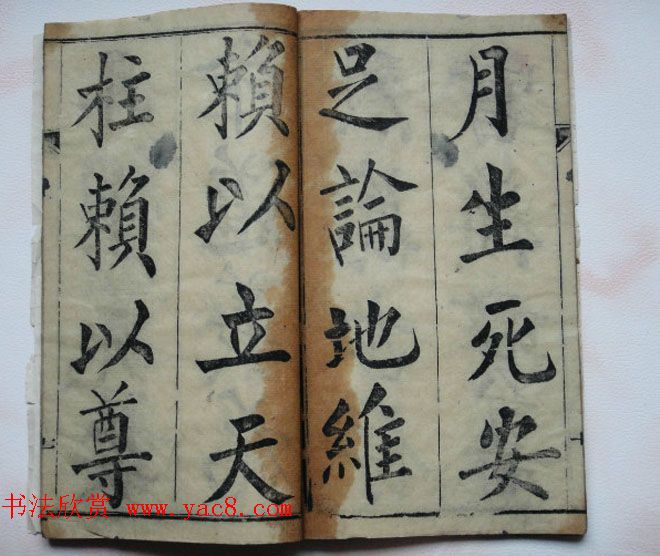 月生死安
足論地維
賴以立天
柱賴以尊
书法欣赏 www.yac8.com